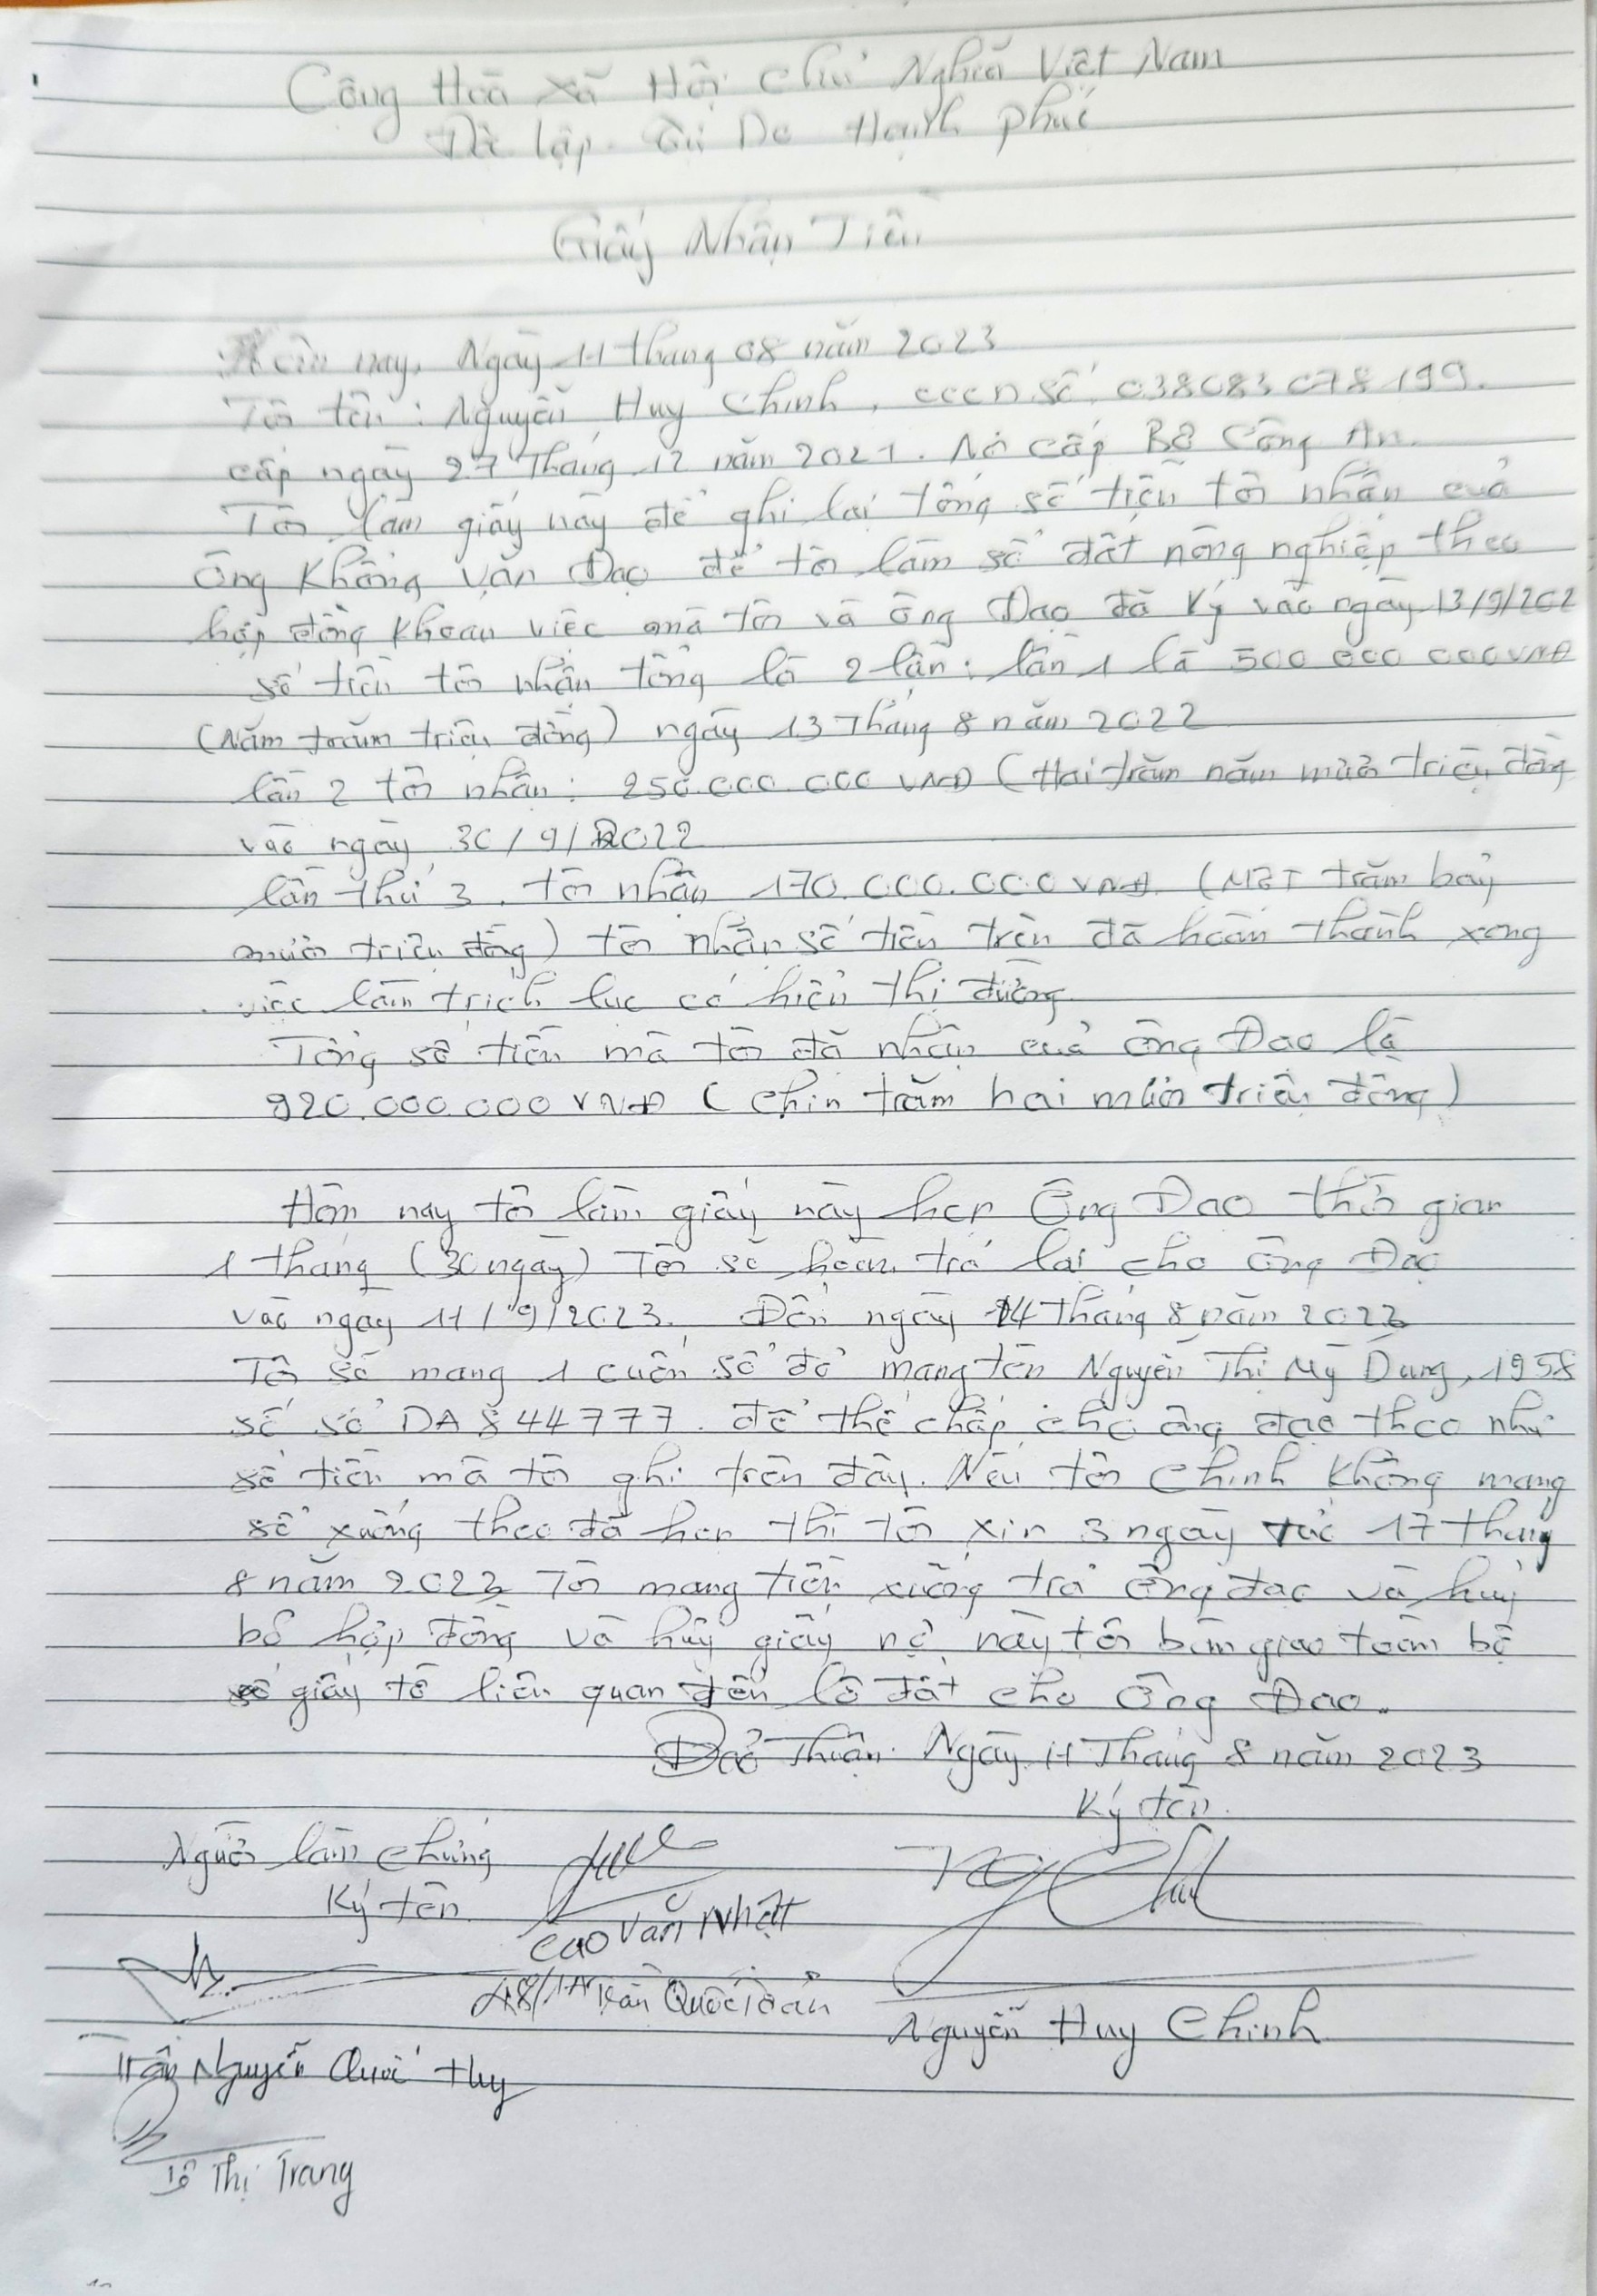 Cộng Hoà Xã Hội Chủ Nghĩa Việt Nam
Độc lập. Tự Do Hạnh phúc
Giấy Nhận Tiền
Hôm nay, Ngày 11 tháng 08 năm 2023
Tôi tên: Nguyễn Huy Chinh, CCCD số 038083078199.
cấp ngày 27 Tháng 12 năm 2021. Nơi cấp Bộ Công An.
Tôi làm giấy này để ghi lại tổng số tiền tôi nhận của
Ông Khổng Văn Đạo để tôi làm sổ đất nông nghiệp theo
hợp đồng khoán việc mà tôi và ông Đạo đã ký vào ngày 13/9/202
số tiền tôi nhận tổng là 2 lần: lần 1 là 500 000 000 VNĐ
(Năm trăm triệu đồng) ngày 13 Tháng 8 năm 2022
lần 2 tôi nhận: 250.000.000 VNĐ (Hai trăm năm mươi triệu đồng
vào ngày 30/9/2022
lần thứ 3. tôi nhận 170.000.000 VNĐ. (Một trăm bảy
mươi triệu đồng) tôi nhận số tiền trên đã hoàn thành xong
việc làm trích lục có hiển thị đường.
Tổng số tiền mà tôi đã nhận của ông Đạo là
920.000.000 VNĐ (chín trăm hai mươi triệu đồng)
Hôm nay tôi làm giấy này hẹn Ông Đạo thời gian
1 tháng (30 ngày) Tôi sẽ hoàn trả lại cho ông Đạo
vào ngày 11/9/2023. Đến ngày 14 tháng 8 năm 2023
Tôi sẽ mang 1 cuốn sổ đỏ mang tên Nguyễn Thị Mỹ Dung, 1958
số sổ DA 844777. để thế chấp cho ông đạo theo như
số tiền mà tôi ghi trên đây. Nếu tôi Chinh không mang
sổ xuống theo đã hẹn thì tôi xin 3 ngày tức 17 tháng
8 năm 2023 Tôi mang tiền xuống trả ông đạo và huỷ
bỏ hợp đồng và hủy giấy nợ này tôi bàn giao toàn bộ
số giấy tờ liên quan đến lô đất cho Ông Đạo.
Thuận. Ngày 11 Tháng 8 năm 2023
Ký tên.
Người làm chứng
Ký tên.
Cao Văn Nhật
Trần Quốc Toản
Nguyễn Huy Chinh
Trần Nguyễn Quốc Huy
Thị Trang